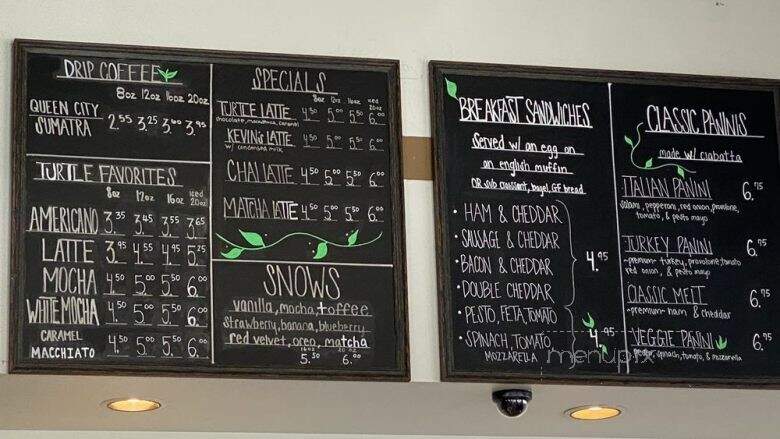 DRIP COFFEE
8oz 12oz 16oz 20oz
QUEEN CITY
SUMATRA 2.55 3.25 3.60 3.95
TURTLE FAVORITES
8oz 12oz 16oz iced 20oz
AMERICANO 3.35 3.45 3.55 3.65
LATTE 3.95 4.55 4.95 5.25
MOCHA 4.50 5.00 5.50 6.00
WHITE MOCHA 4.50 5.00 5.50 6.00
CARAMEL
MACCHIATO 4.50 5.00 5.50 6.00
SPECIALS
8oz 12oz 16oz iced 20oz
TURTLE LATTE 4.50 5.00 5.50 6.00
chocolate, macadamia, caramel
KEVIN'S LATTE 4.50 5.00 5.50 6.00
w/ condensed milk
CHAI LATTE 4.50 5.00 5.50 6.00
MATCHA LATTE 4.50 5.00 5.50 6.00
SNOWS
vanilla, mocha, toffee
strawberry, banana, blueberry
red velvet, oreo, matcha
16oz 20oz
5.50 6.00
BREAKFAST SANDWICHES
Served w/ an egg on
an english muffin
OR sub croissant, bagel, GF bread
• HAM & CHEDDAR
• SAUSAGE & CHEDDAR
• BACON & CHEDDAR 4.95
• DOUBLE CHEDDAR
• PESTO, FETA, TOMATO
• SPINACH, TOMATO 4.95
MOZZARELLA
CLASSIC PANINIS
made w/ ciabatta
ITALIAN PANINI 6.75
salami, pepperoni, red onion, provolone,
tomato, & pesto mayo
TURKEY PANINI 6.75
~premium turkey, provolone, tomato
red onion, & pesto mayo
CLASSIC MELT 6.75
~premium ham & cheddar
VEGGIE PANINI 6.75
spinach, tomato, & mozzarella
menupix